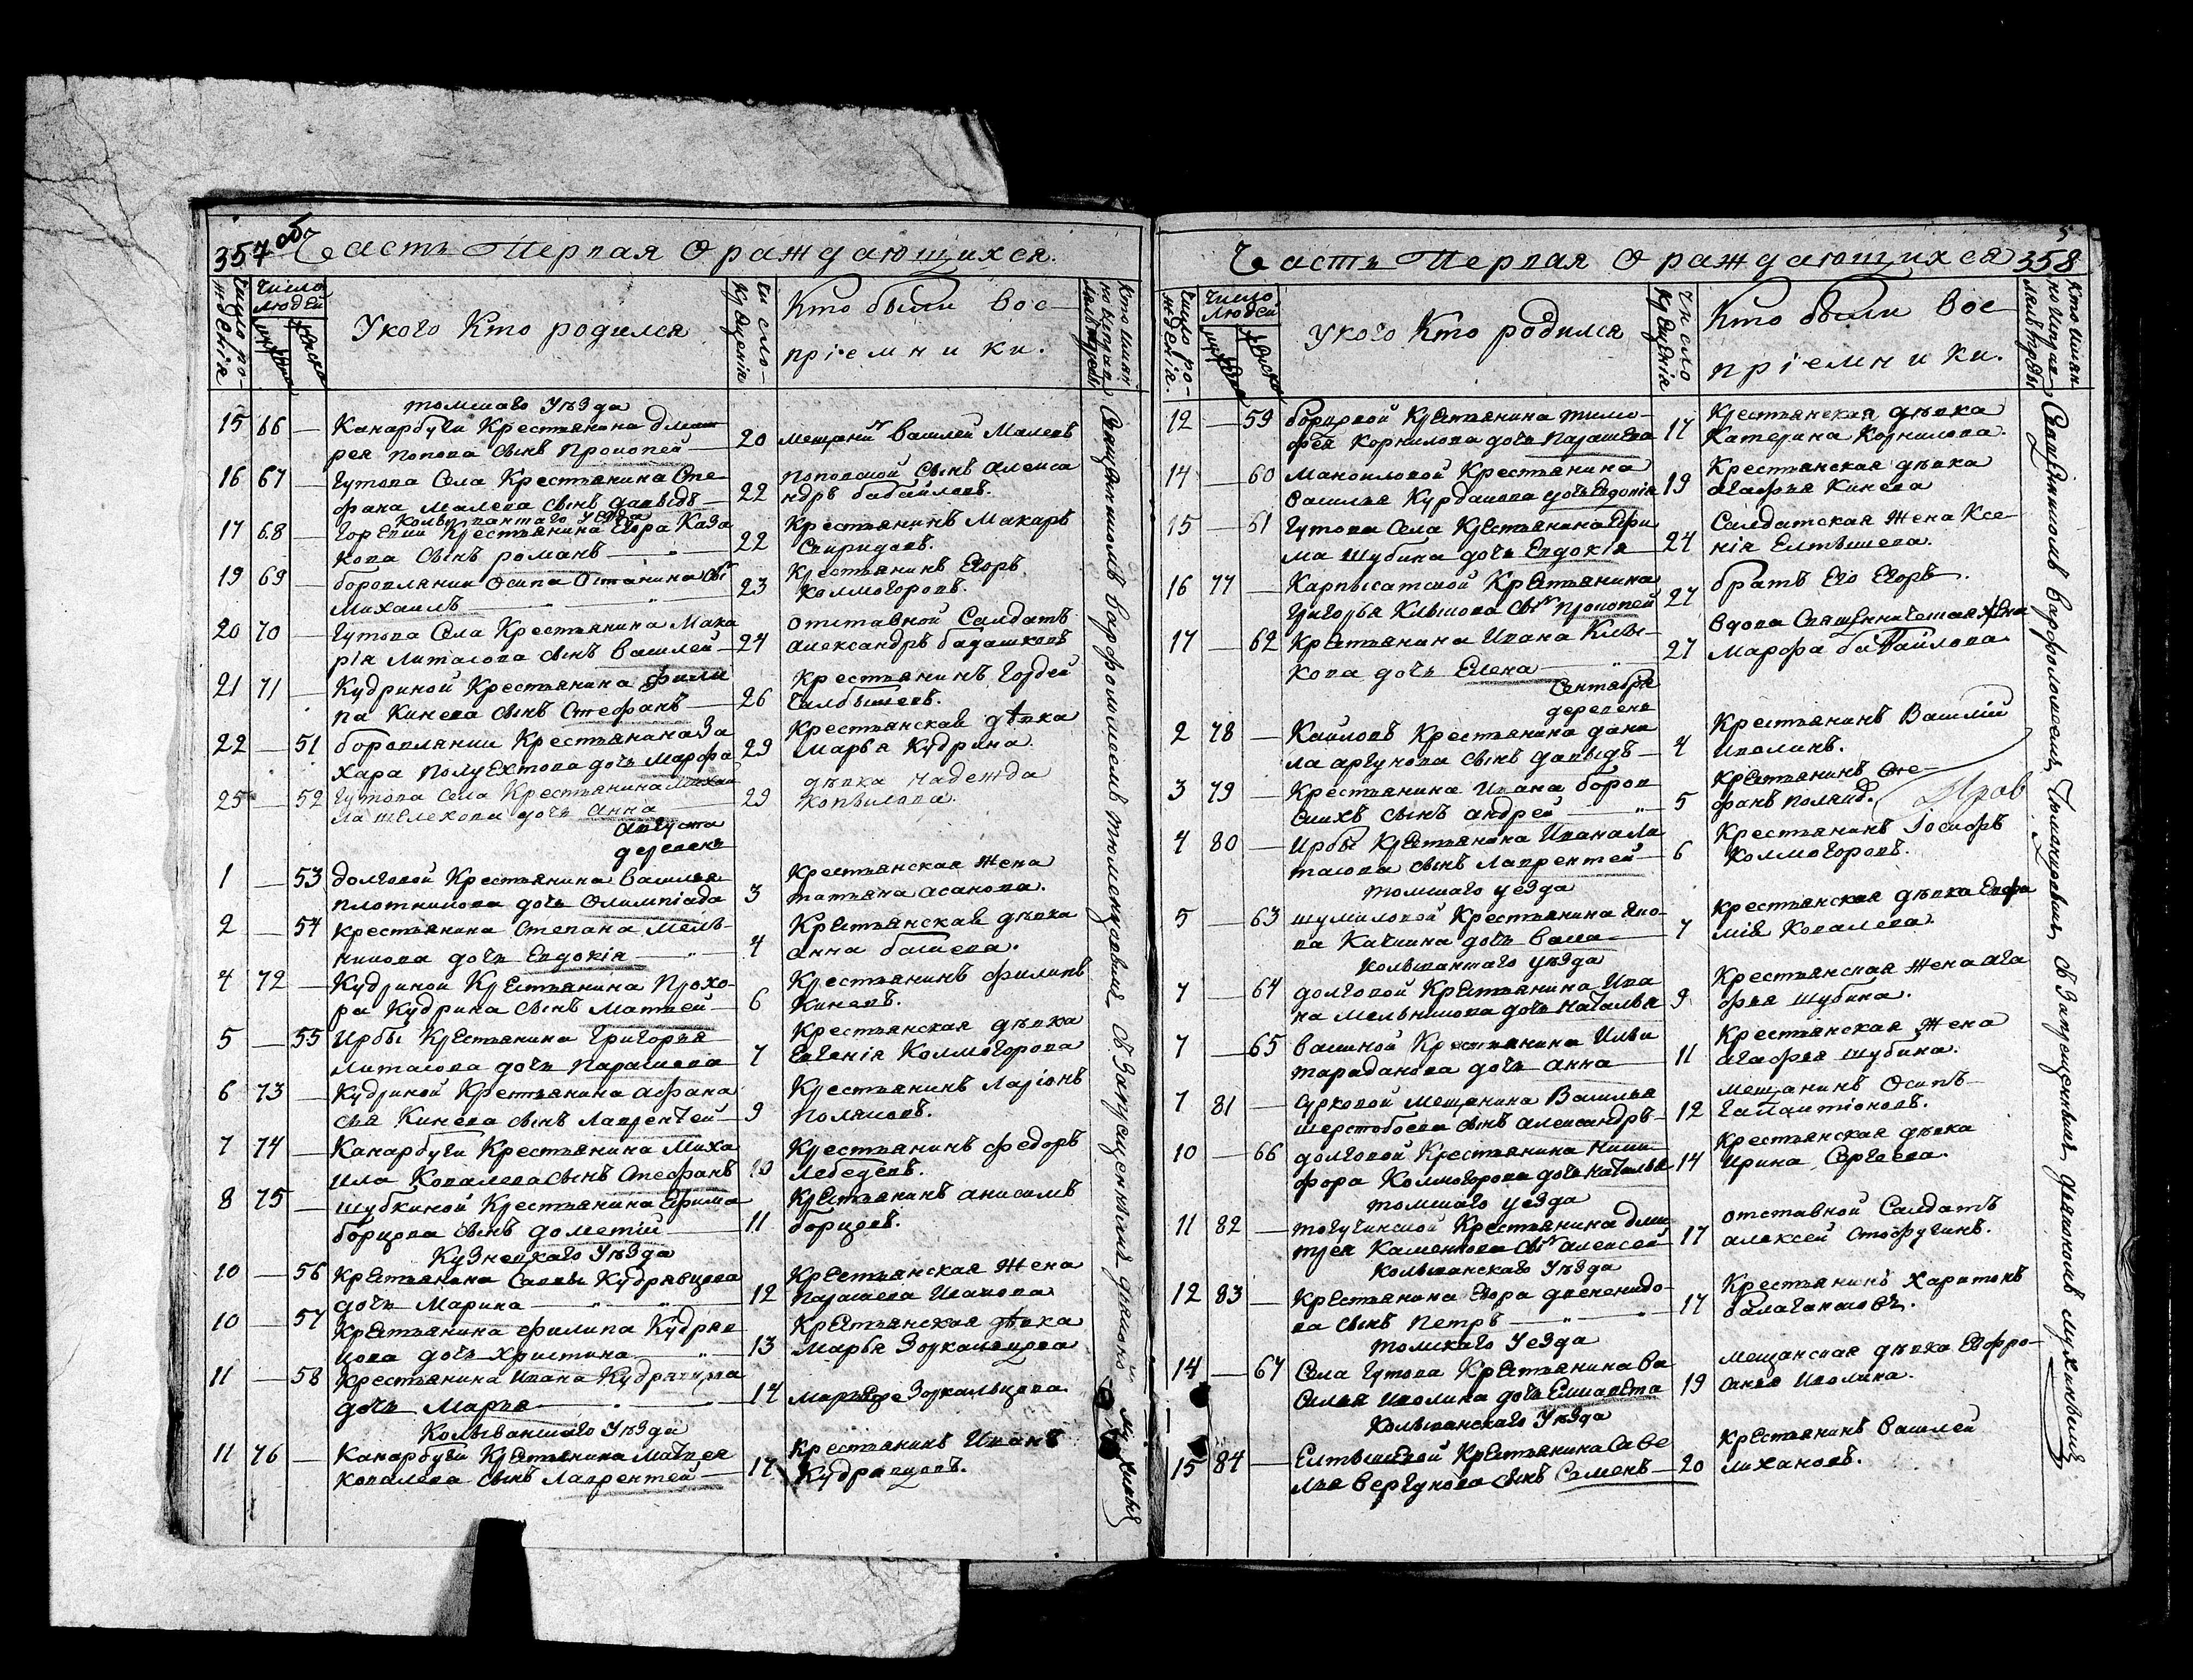 357 об
Часть Первая О раждающихся.
Число рожденія
Число людей
мужеска
женска
У кого Кто родился
Число крещенія
Кто были вос-
пріемники.
томскаго уѣзда
15 66 — Канарбуги Крестьянина дмит
рея попова сынъ Прокопей — 20 мещанинъ василей Малевъ
16 67 — Гутова Села Крестьянина Сте-
фана малева сынъ давыдъ — 22 поповской сынъ алекса
ндръ бабайловъ.
Колыванскаго уезда
17 68 — Крестьянина Егора Каза
кова сынъ романъ — 22 Крестьянинъ Макаръ
Спиридовъ.
19 69 — боровлянки Осипа Останина сынъ
Михаилъ — 23 Крестьянинъ Егоръ
Колмогоровъ.
20 70 — Гутова Села Крестьянина Мака
рія литасова сынъ василей — 24 отставной Салдатъ
александръ бадашковъ
21 71 — Кудриной Крестьянина фили
па Кинева сынъ Стефанъ — 26 Крестьянинъ Гордей
22 — 51 боровлянки Крестьянина За
хара полуехтова дочь марфа 29 Крестьянская дѣвка
марья Кудрина.
25 — 52 Гутова Села Крестьянина Михаи
ла шелехова дочь анна 29 дѣвка надежда
Копылова.
августа
деревень
1 — 53 долговой Крестьянина василья
плотникова дочь Олимпіада 3 Крестьянская жена
татьяна асанова.
2 — 54 крестьянина Степана мель-
никова дочь Евдокія — 4 Крестьянская дѣвка
анна
4 72 — Кудриной Крестьянина Прохо-
ра Кудрина сынъ матвей — 6 Крестьянинъ филипъ
Киневъ.
5 — 55 Ирбы Крестьянина Григорья
литасова дочь Парасковья 7 Крестьянская дѣвка
Евгенія Колмогорова
6 73 — Кудриной Крестьянина афана
сья Кинева сынъ Лаврентей — 9 Крестьянинъ ларіонъ
поляковъ.
7 74 — Канарбуги Крестьянина Миха
ила Ковалева сынъ Стефанъ 10 Крестьянинъ федоръ
Лебедевъ.
8 75 — шубкиной Крестьянина Ефима
борцова сынъ дометій — 11 Крестьянинъ анисимъ
борцовъ.
Кузнецкаго уѣзда
10 — 56 Крестьянина Саввы Кудрявцова
дочь Марина — 12 Крестьянская жена
Иванова
10 — 57 Крестьянина филипа Кудряв
цова дочь христина — 13 Крестьянская дѣвка
марья Зоркальцова
11 — 58 Крестьянина Ивана Кудрявцова
дочь Марья — 14 Зоркальцова
Колыванскаго уѣзда
11 76 — Канарбуги Крестьянина Матвея
Ковалева сынъ Лаврентей — 17 Крестьянинъ Иванъ
Кудрявцовъ.
Священникомъ варфоломеемъ с дьякономъ Мухинымъ
358
Часть Первая О раждающихся
Число рожденія
Число людей
мужеска
женска
У кого Кто родился
Число крещенія
Кто были вос-
пріемники.
12 — 59 борцовой Крестьянина тимо-
фея Корнилова дочь 17 Крестьянская дѣвка
Катерина Корнилова.
14 — 60 маноиловой Крестьянина
василья Курдакова дочь Евдокія 19 Крестьянская дѣвка
агафья Кинева
15 — 61 Гутова Села Крестьянина Ефи
ма Шубина дочь Евдокія — 24 Салдатская жена Ксе-
нія Елтышева.
16 77 — Карпысатской Крестьянина
Григорья Клыкова сынъ прокопей 27 братъ Его Егоръ.
17 — 62 Крестьянина Ивана Клы-
кова дочь Елена — 27 вдова Священническая жена
марфа бабайлова
Сентября
деревень
2 78 — Каиловъ Крестьянина дани
ла аргунова сынъ давыдъ — 4 Крестьянинъ Василій
Иволинъ.
3 79 — Крестьянина Ивана боров
скихъ сынъ андрей — 5 Крестьянинъ Сте-
фанъ
4 80 — Ирбы Крестьянина Ивана Ли
тасова сынъ лаврентей — 6 Крестьянинъ Іосифъ
Колмогоровъ.
томскаго уезда
5 — 63 шумиловой Крестьянина Яко-
ва дочь васа — 7 Крестьянская дѣвка Евфи
мія Ковалева
Колыванскаго уѣзда
7 — 64 долговой Крестьянина Ива
на Мельникова дочь наталья 9 Крестьянская жена ага
фья шубина.
7 — 65 васиной Крестьянина Ильи
тараданова дочь анна 11 Крестьянская жена
агафья шубина.
7 81 — Сурковой мещанина Василья
шерстобоева сынъ александръ — 12 мещанинъ Осипъ
Галактіоновъ.
10 — 66 долговой Крестьянина Ники
фора Колмогорова дочь наталья 14 Крестьянская дѣвка
Ирина Сергеева.
томскаго уезда
11 82 — тогучинской Крестьянина дми
трея Каменкова сынъ алексей 17 отставной Салдатъ
алексей
Колыванскаго уѣзда
12 83 — Крестьянина Егора
сынъ Петръ — 17 Крестьянинъ харитонъ
томскаго уезда
14 — 67 Села Гутова Крестьянина ва
силья Иволина дочь Елисавета 19 мещанская дѣвка Ефро-
Иволина.
Колыванскаго уѣзда
15 84 — Елтышевой Крестьянина Саве
лья Вергунова сынъ Семенъ — 20 Крестьянинъ василей
лихановъ.
Священникомъ варфоломеемъ с дьякономъ мухинымъ